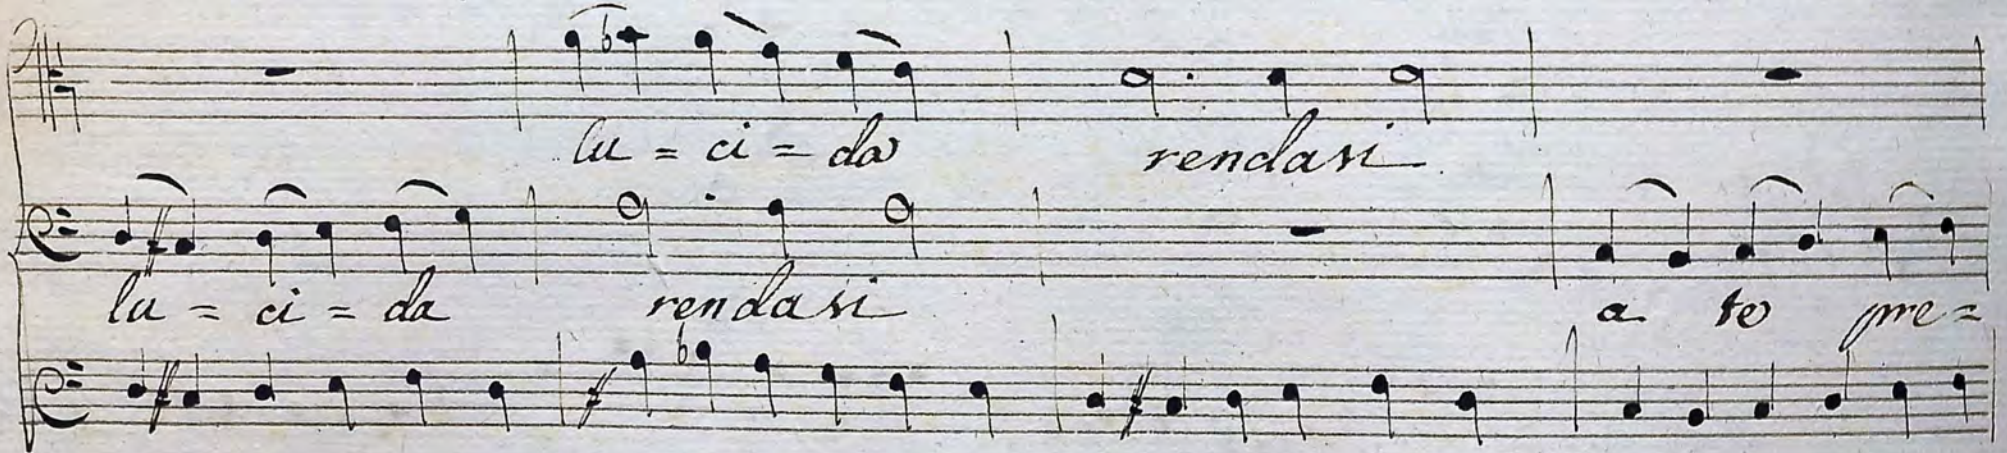 lu = ci = da rendasi
lu = ci = da rendasi a te pre =